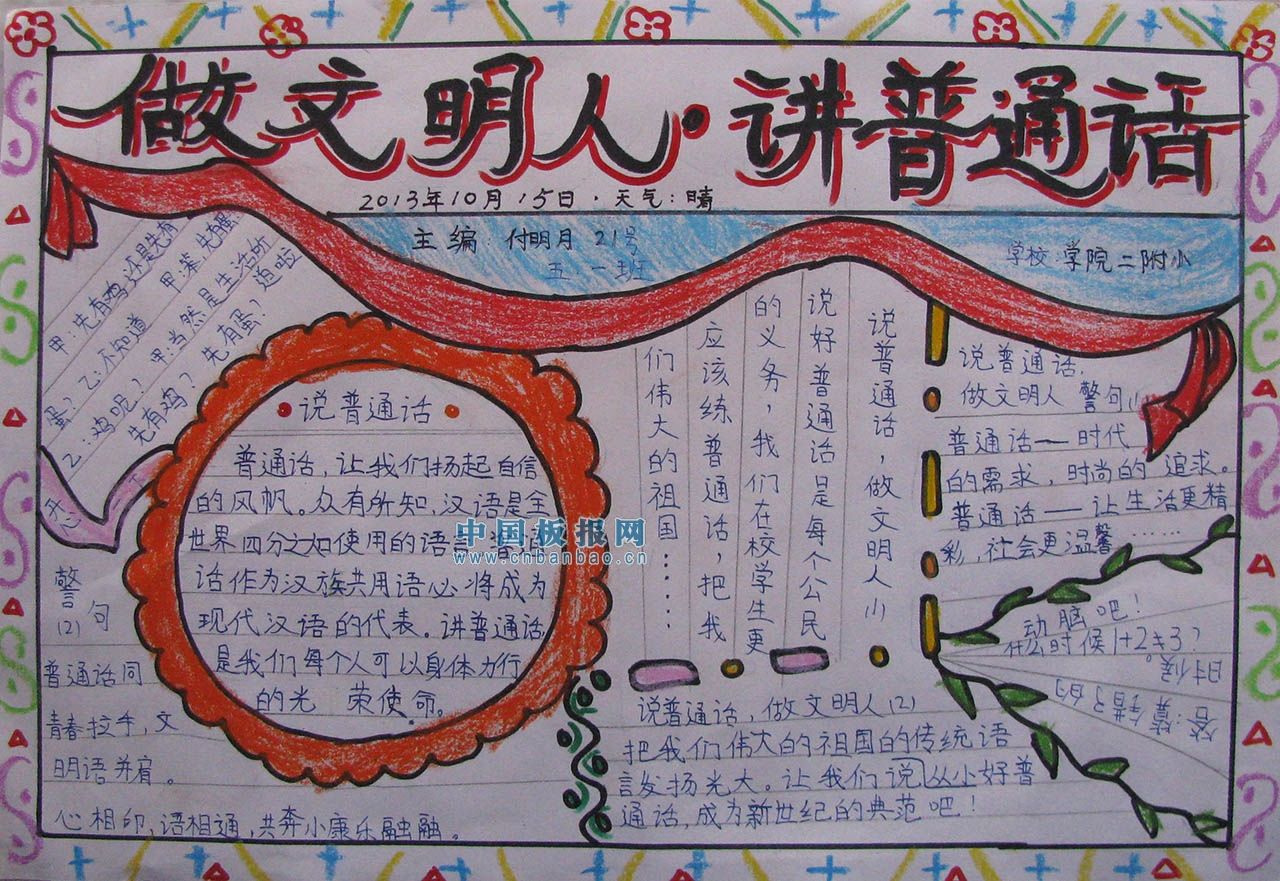 做文明人·讲普通话
2013年10月15日·天气:晴
主编:付明月 21号
五一班
学校:学院二附小
甲:先有鸡还是先有
蛋? 乙:不知道 甲:笨,先有蛋.
乙:鸡呢? 甲:当然是生活所
先有鸡? 先有蛋? 迫啦
开心
·说普通话·
普通话,让我们扬起自信
的风帆。众有所知,汉语是全
世界四分之如使用的语
话作为汉族共用语心将成为
现代汉语的代表。讲普通话
是我们每个人可以身体力行
的光 荣使命。
中国板报网
www.cnbanbao.cn
说普通话,做文明人(1)
说好普通话是每个公民
的义务,我们在校学生更
应该练普通话,把我
们伟大的祖国……
说普通话,
做文明人 警句(1)
普通话—时代
的需求,时尚的 追求。
普通话—让生活更精
彩,社会更温馨……
动脑吧!
什么时候1+2≠3?
答:算错了的
时候。
警句
(2)
普通话同
青春拉手,文
明语并肩。
心相印,语相通,共奔小康乐融融。
说普通话,做文明人(2)
把我们伟大的祖国的传统语
言发扬光大。让我们说从小好普
通话,成为新世纪的典范吧!